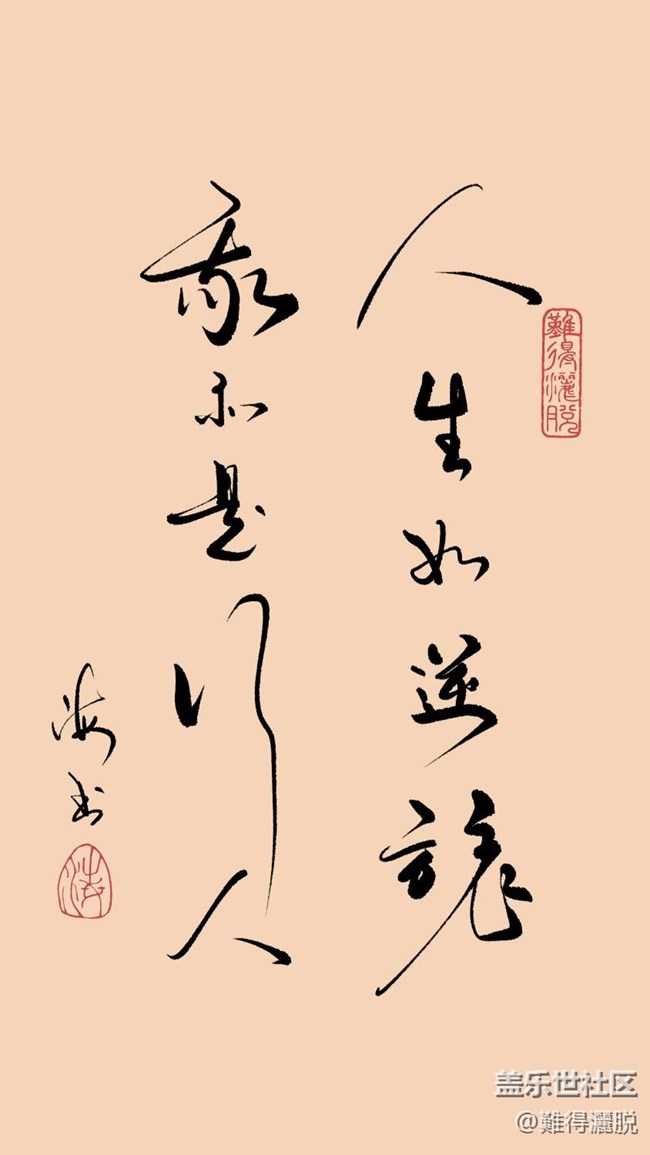 人生如逆旅
難得灑脱
我亦是行人
海书
海
盖乐世社区
@難得灑脱